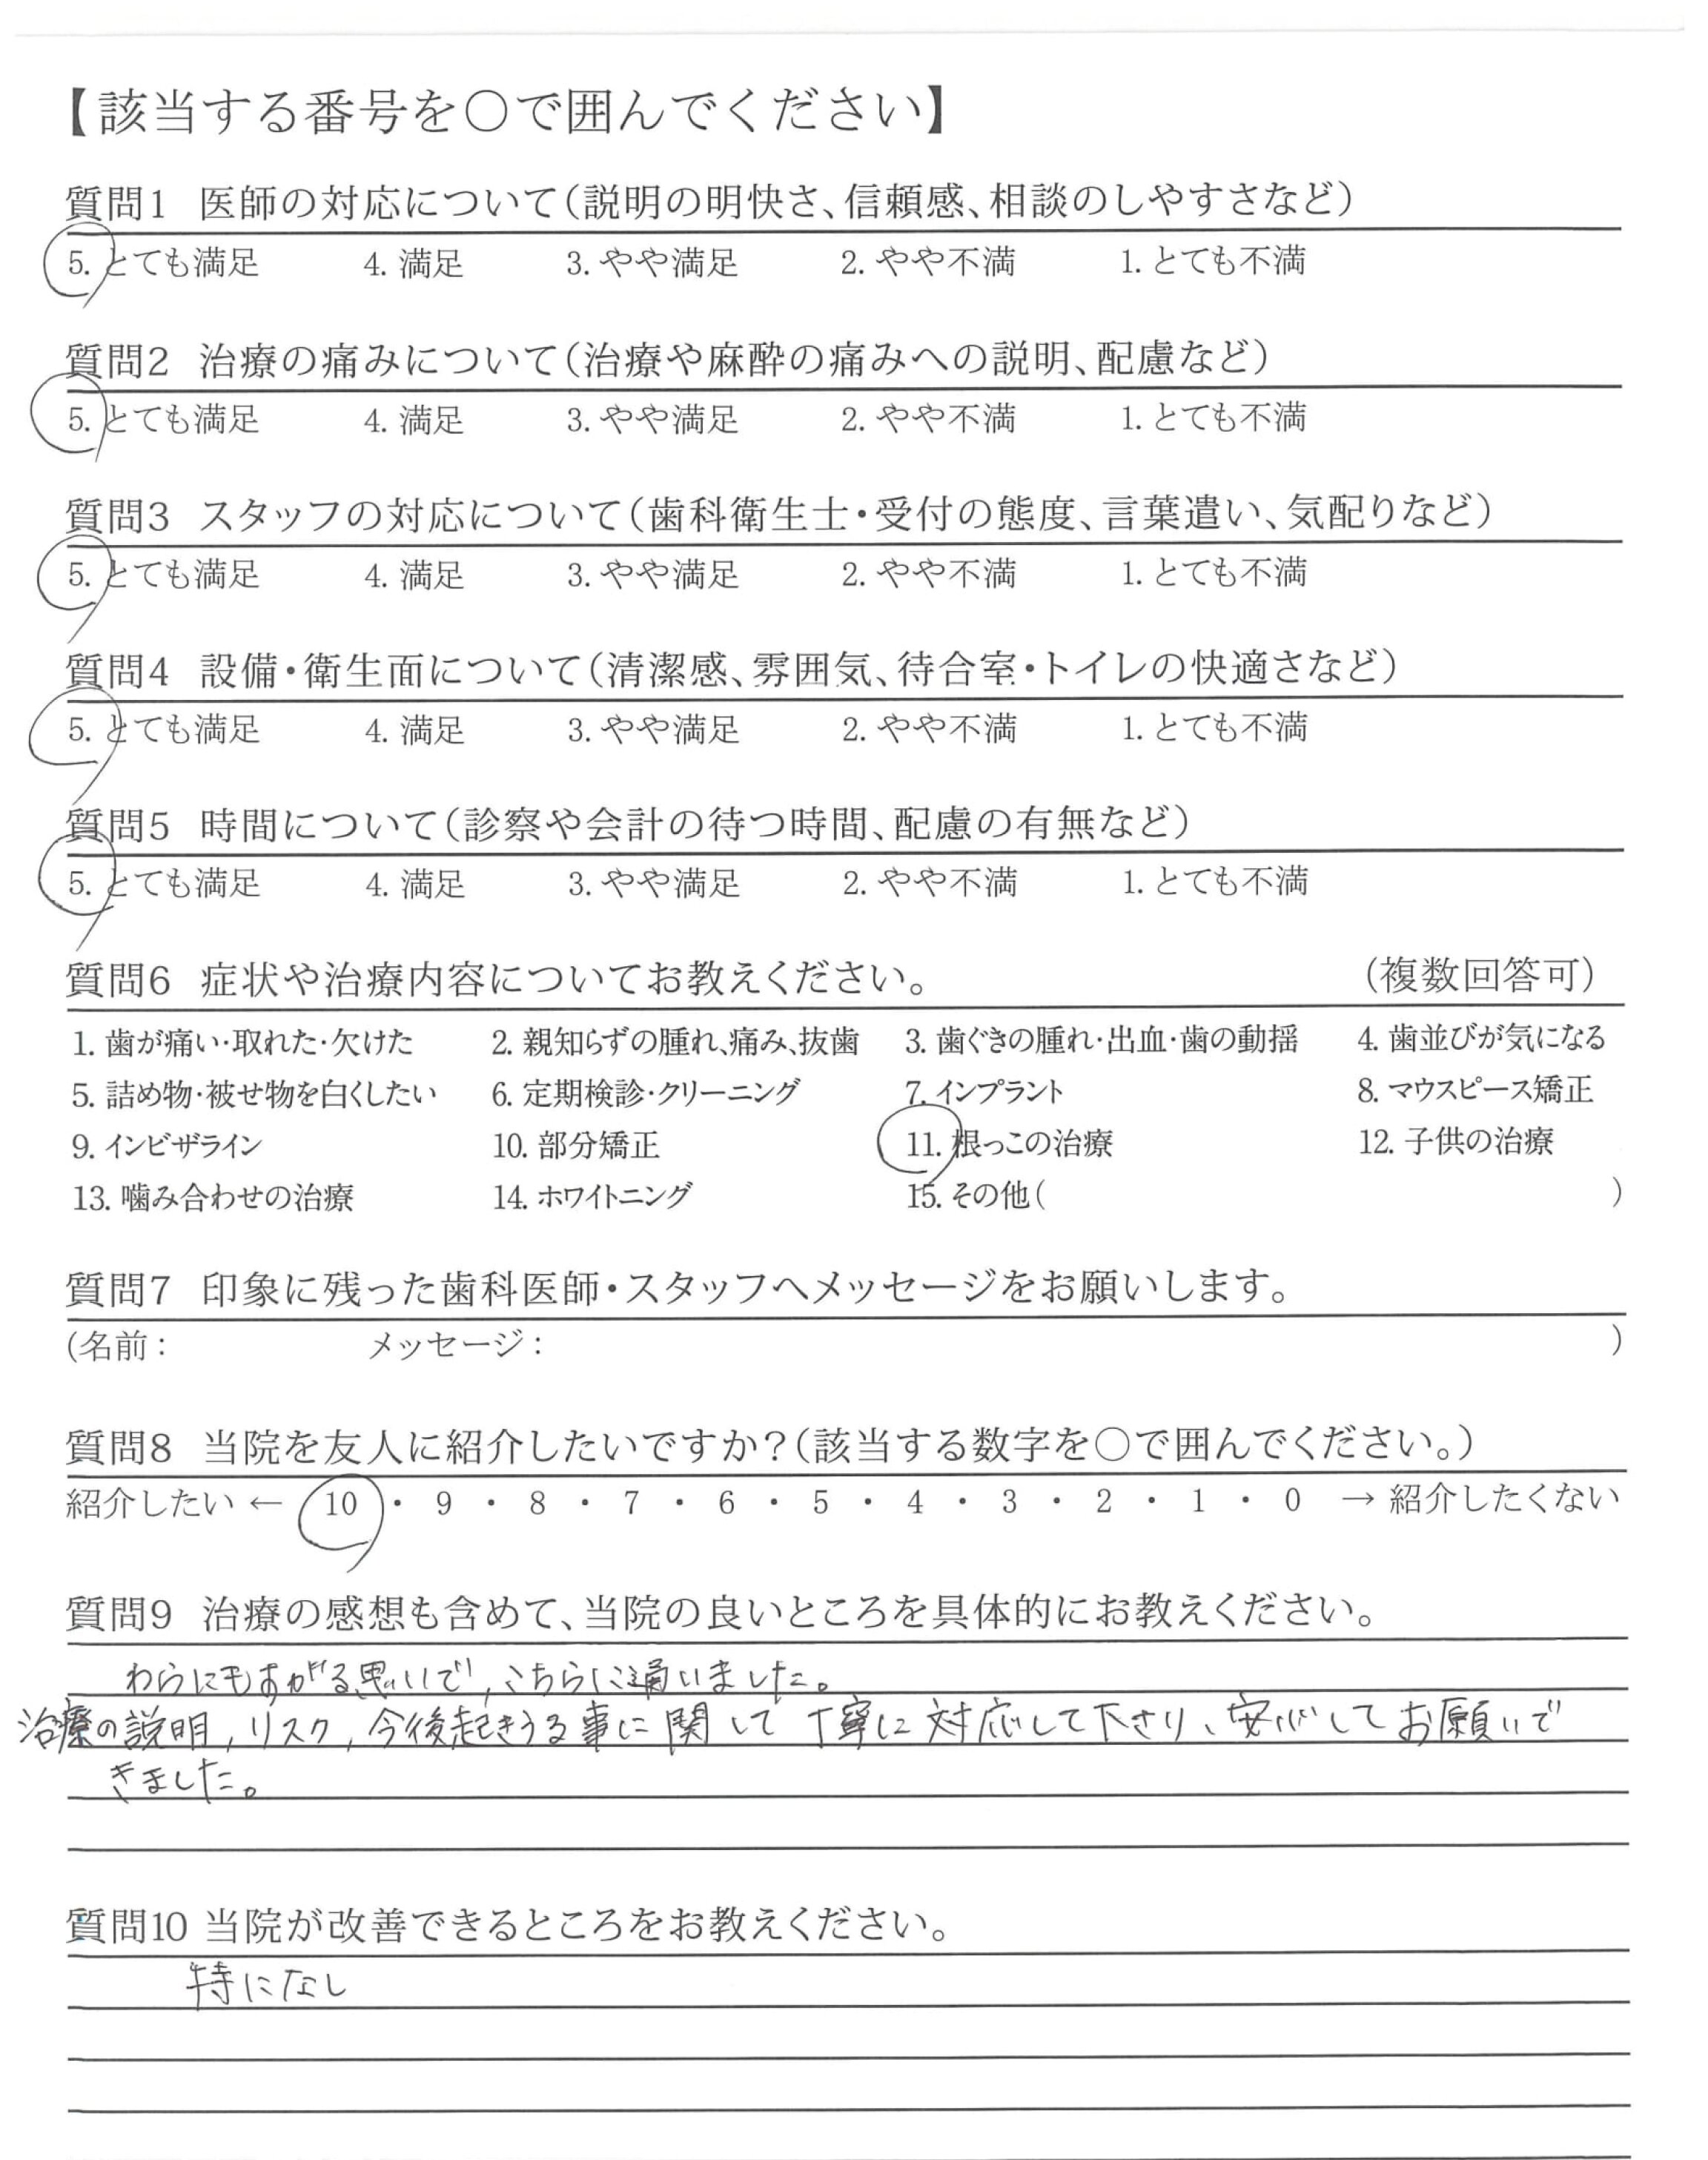 【該当する番号を○で囲んでください】
質問1 医師の対応について（説明の明快さ、信頼感、相談のしやすさなど）
5. とても満足 4. 満足 3. やや満足 2. やや不満 1. とても不満
質問2 治療の痛みについて（治療や麻酔の痛みへの説明、配慮など）
5. とても満足 4. 満足 3. やや満足 2. やや不満 1. とても不満
質問3 スタッフの対応について（歯科衛生士・受付の態度、言葉遣い、気配りなど）
5. とても満足 4. 満足 3. やや満足 2. やや不満 1. とても不満
質問4 設備・衛生面について（清潔感、雰囲気、待合室・トイレの快適さなど）
5. とても満足 4. 満足 3. やや満足 2. やや不満 1. とても不満
質問5 時間について（診察や会計の待つ時間、配慮の有無など）
5. とても満足 4. 満足 3. やや満足 2. やや不満 1. とても不満
質問6 症状や治療内容についてお教えください。 （複数回答可）
1. 歯が痛い・取れた・欠けた 2. 親知らずの腫れ、痛み、抜歯 3. 歯ぐきの腫れ・出血・歯の動揺 4. 歯並びが気になる
5. 詰め物・被せ物を白くしたい 6. 定期検診・クリーニング 7. インプラント 8. マウスピース矯正
9. インビザライン 10. 部分矯正 11. 根っこの治療 12. 子供の治療
13. 噛み合わせの治療 14. ホワイトニング 15. その他（ ）
質問7 印象に残った歯科医師・スタッフへメッセージをお願いします。
（名前： メッセージ： ）
質問8 当院を友人に紹介したいですか？（該当する数字を○で囲んでください。）
紹介したい ← 10 ・ 9 ・ 8 ・ 7 ・ 6 ・ 5 ・ 4 ・ 3 ・ 2 ・ 1 ・ 0 → 紹介したくない
質問9 治療の感想も含めて、当院の良いところを具体的にお教えください。
わらにもすがる思いで、こちらに通いました。
治療の説明，リスク，今後起きうる事に関して丁寧に対応して下さり、安心してお願いで
きました。
質問10 当院が改善できるところをお教えください。
特になし